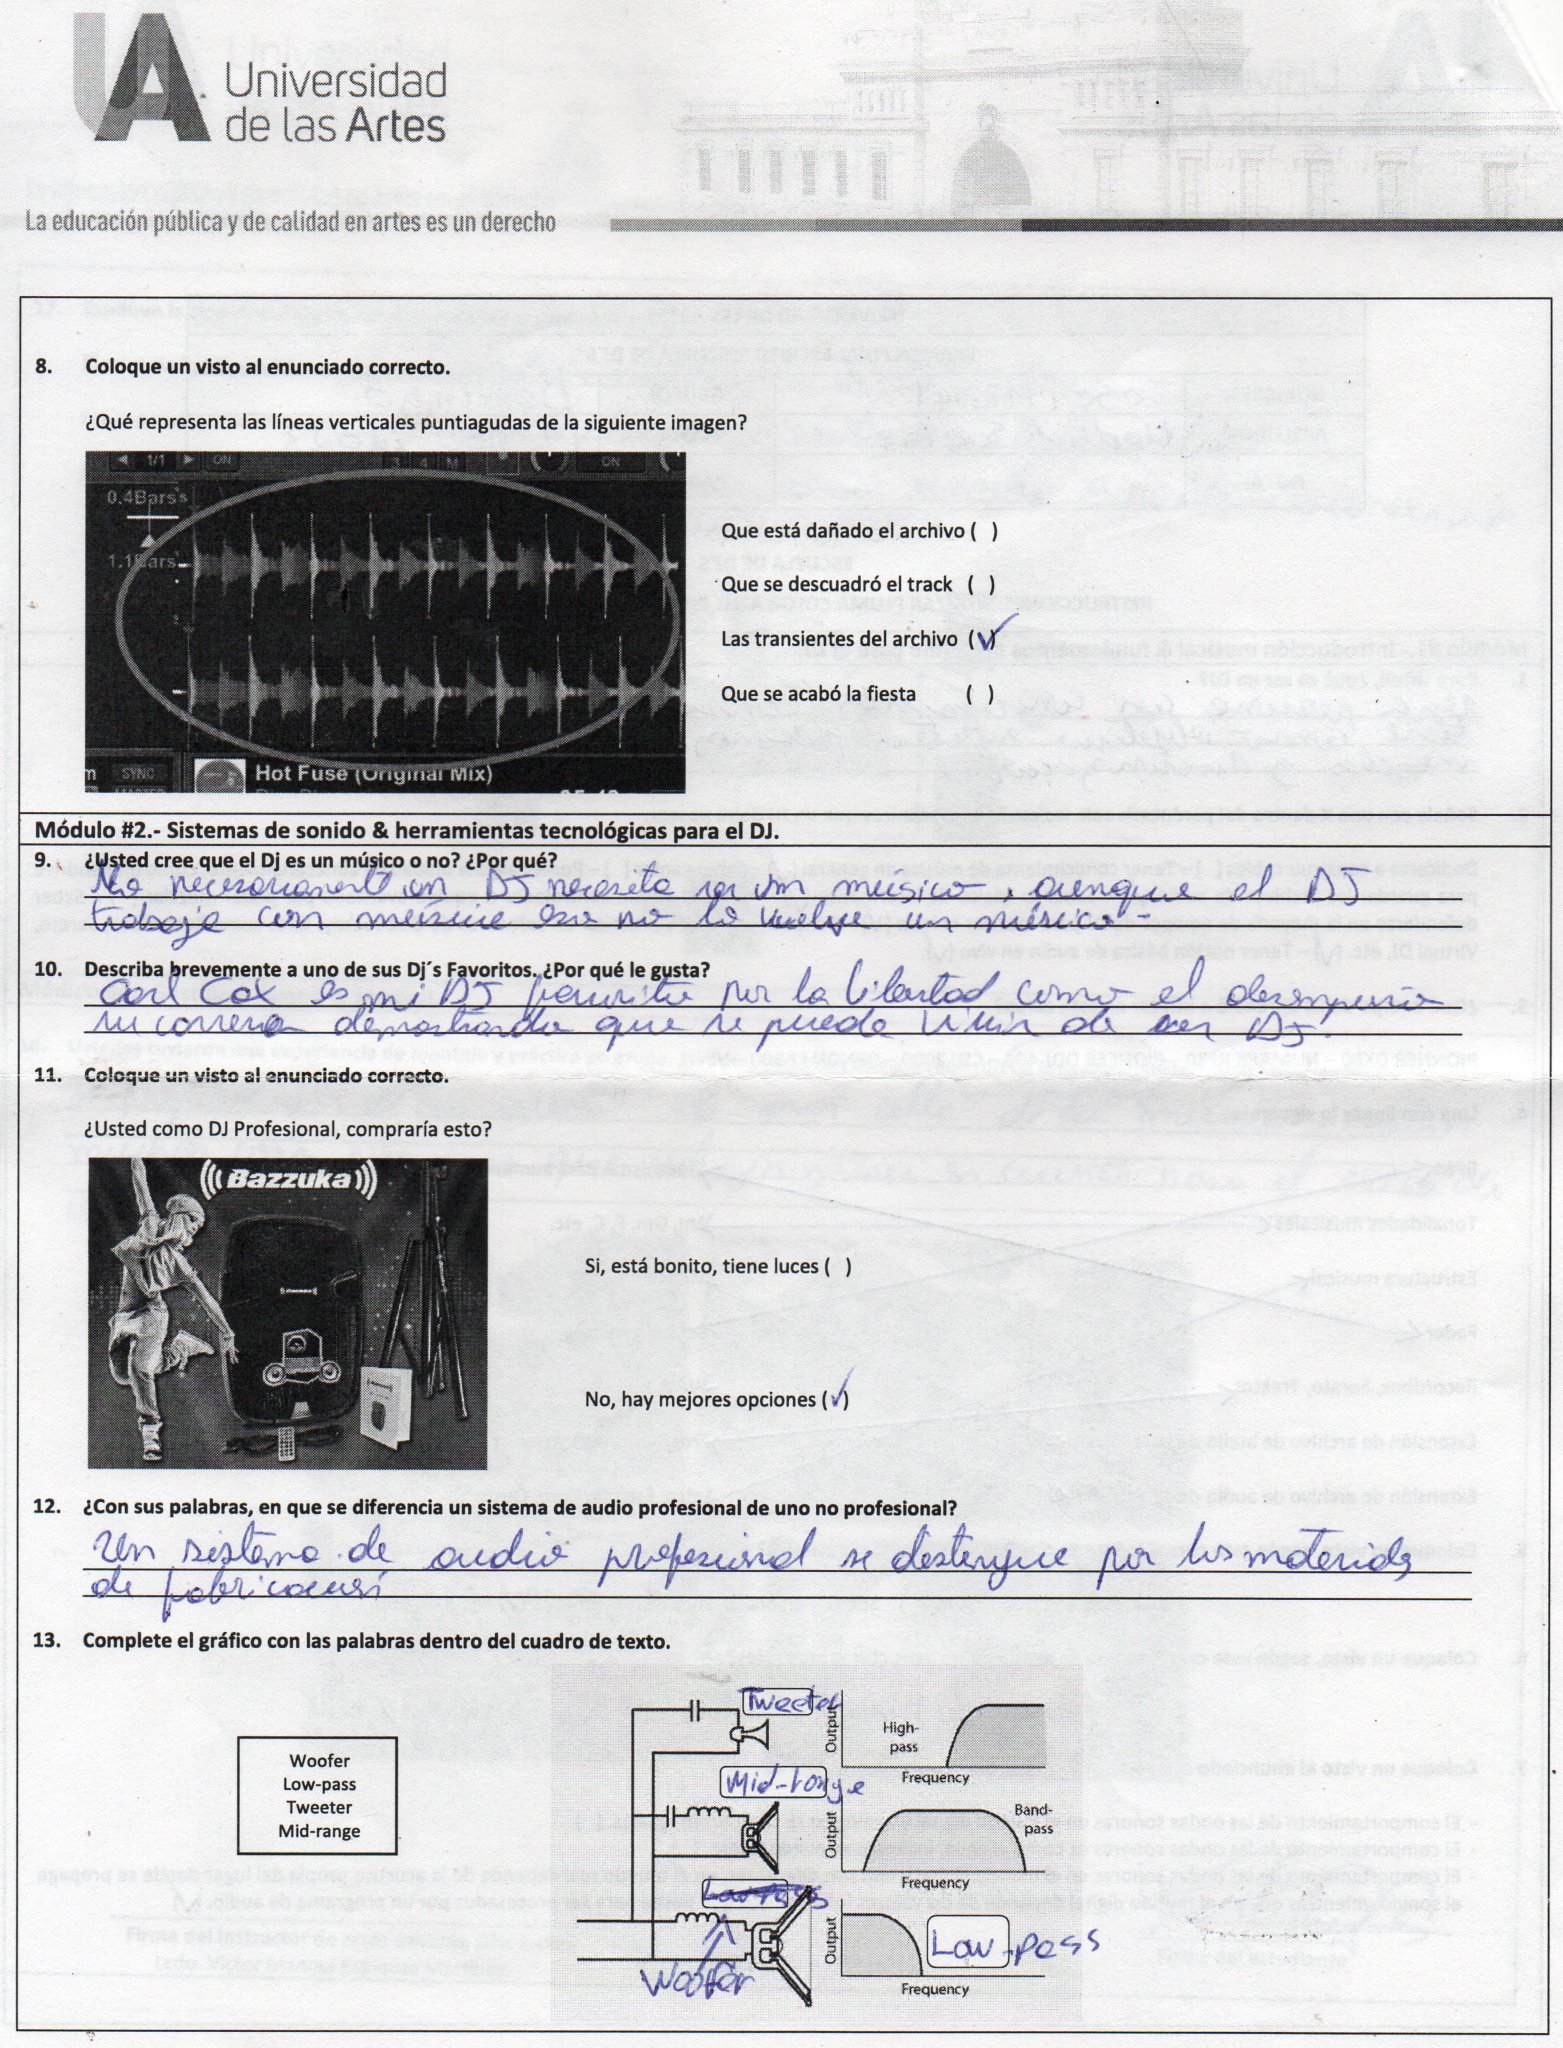 UA Universidad
de las Artes
La educación pública y de calidad en artes es un derecho
8. Coloque un visto al enunciado correcto.
¿Qué representa las líneas verticales puntiagudas de la siguiente imagen?
1/1 ON 3 4 M ON
0.4Bars
1.1Bars
SYNC
Hot Fuse (Original Mix)
Que está dañado el archivo ( )
Que se descuadró el track ( )
Las transientes del archivo (✓)
Que se acabó la fiesta ( )
Módulo #2.- Sistemas de sonido & herramientas tecnológicas para el DJ.
9. ¿Usted cree que el Dj es un músico o no? ¿Por qué?
No necesariamente un DJ necesita ser un músico, aunque el DJ
trabaje con música eso no lo vuelve un músico-
10. Describa brevemente a uno de sus Dj´s Favoritos. ¿Por qué le gusta?
Carl Cox es mi DJ favorito por la libertad como el desempeña
su carrera demostrando que se puede vivir de ser DJ.
11. Coloque un visto al enunciado correcto.
¿Usted como DJ Profesional, compraría esto?
Bazzuka
Si, está bonito, tiene luces ( )
No, hay mejores opciones (✓)
12. ¿Con sus palabras, en que se diferencia un sistema de audio profesional de uno no profesional?
Un sistema de audio profesional se destingue por los materiales
de fabricacion
13. Complete el gráfico con las palabras dentro del cuadro de texto.
Woofer
Low-pass
Tweeter
Mid-range
Tweeter
Output
High-
pass
Frequency
Mid-range
Output
Band-
pass
Frequency
Low-pass
Woofer
Output
Low-pass
Frequency